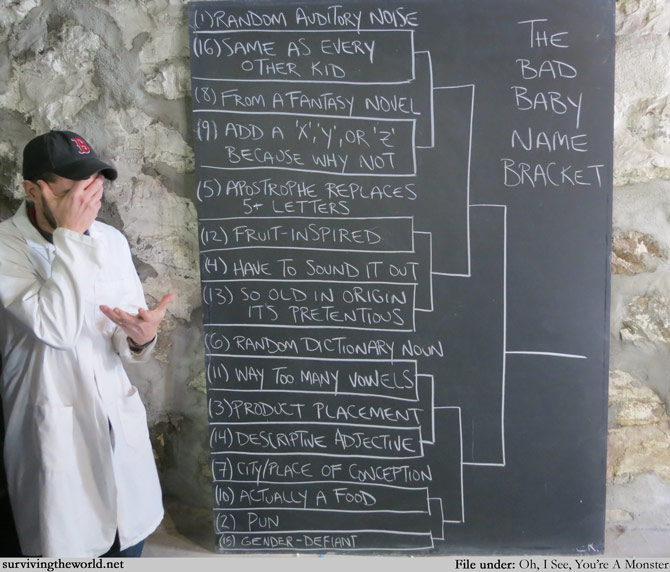 (1) RANDOM AUDITORY NOISE
(16) SAME AS EVERY
OTHER KID
(8) FROM A FANTASY NOVEL
(9) ADD A 'X', 'Y', OR 'Z'
BECAUSE WHY NOT
(5) APOSTROPHE REPLACES
5+ LETTERS
(12) FRUIT-INSPIRED
(4) HAVE TO SOUND IT OUT
(13) SO OLD IN ORIGIN
IT'S PRETENTIOUS
(6) RANDOM DICTIONARY NOUN
(11) WAY TOO MANY VOWELS
(3) PRODUCT PLACEMENT
(14) DESCRIPTIVE ADJECTIVE
(7) CITY/PLACE OF CONCEPTION
(10) ACTUALLY A FOOD
(2) PUN
(15) GENDER-DEFIANT
THE
BAD
BABY
NAME
BRACKET
B
survivingtheworld.net
File under: Oh, I See, You're A Monster